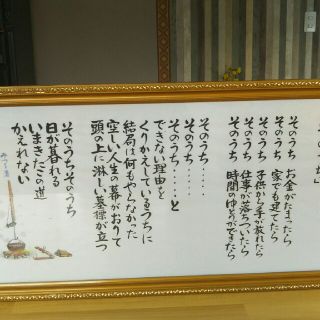 そのうち」
そのうち お金がたまったら
そのうち 家でも建てたら
そのうち 子供から手が放れたら
そのうち 仕事が落ちついたら
そのうち 時間のゆとりができたら
そのうち・・・・・
そのうち・・・・・
そのうち・・・・・と
できない理由を
くりかえしているうちに
結局は何もやらなかった
空しい人生の幕がおりて
頭の上に淋しい墓標が立つ
そのうちそのうち
日が暮れる
いまきたこの道
かえれない